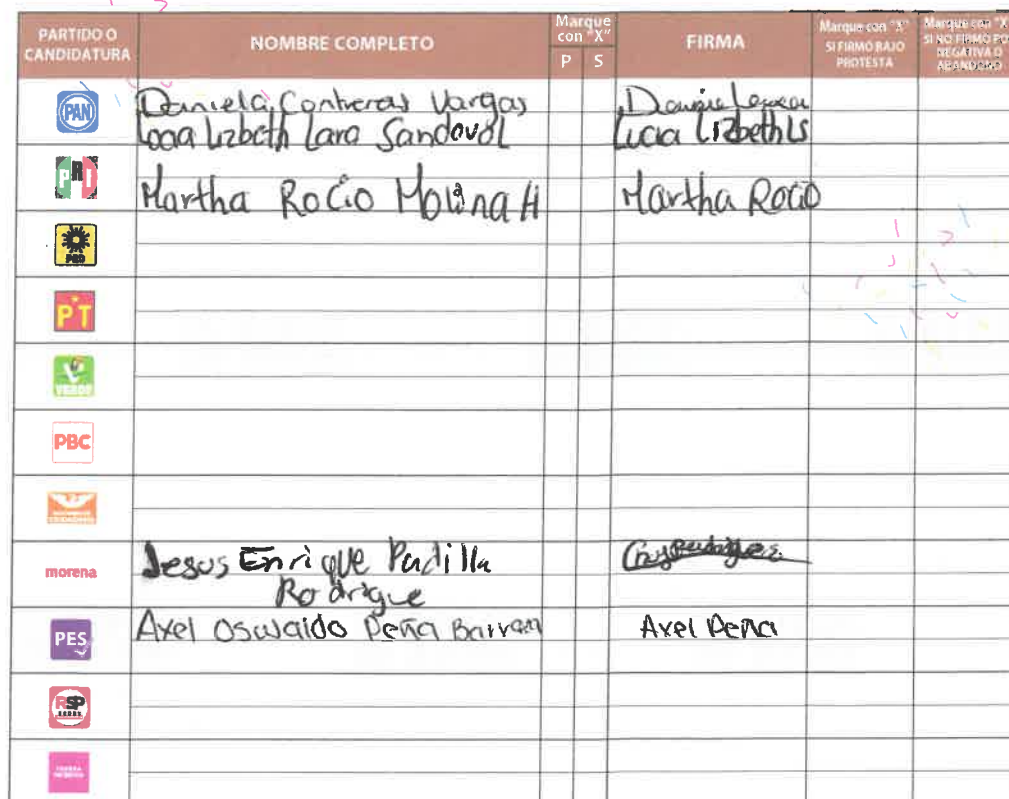 PARTIDO O CANDIDATURA
NOMBRE COMPLETO
Marque con "X"
P S
FIRMA
Marque con "X" SI FIRMÓ BAJO PROTESTA
Marque con "X" SI NO FIRMÓ PO NEGATIVA O ABANDONO
PAN
Daniela Contreras Vargas
Lizbeth Lara Sandoval
Lucia Lizbeth Ls
PRI
Martha Rocio Molina H
Martha Rocio
PRD
PT
VERDE
PBC
morena
Jesus Enrique Padilla
Rodrigue
PES
Axel Oswaldo Peña Barran
Axel Peña
RSP